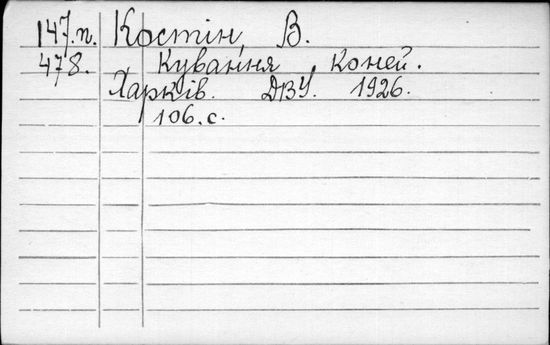 147.п. Костін, В.
478. Кування Коней.
Харків. ДВУ. 1926.
106.с.